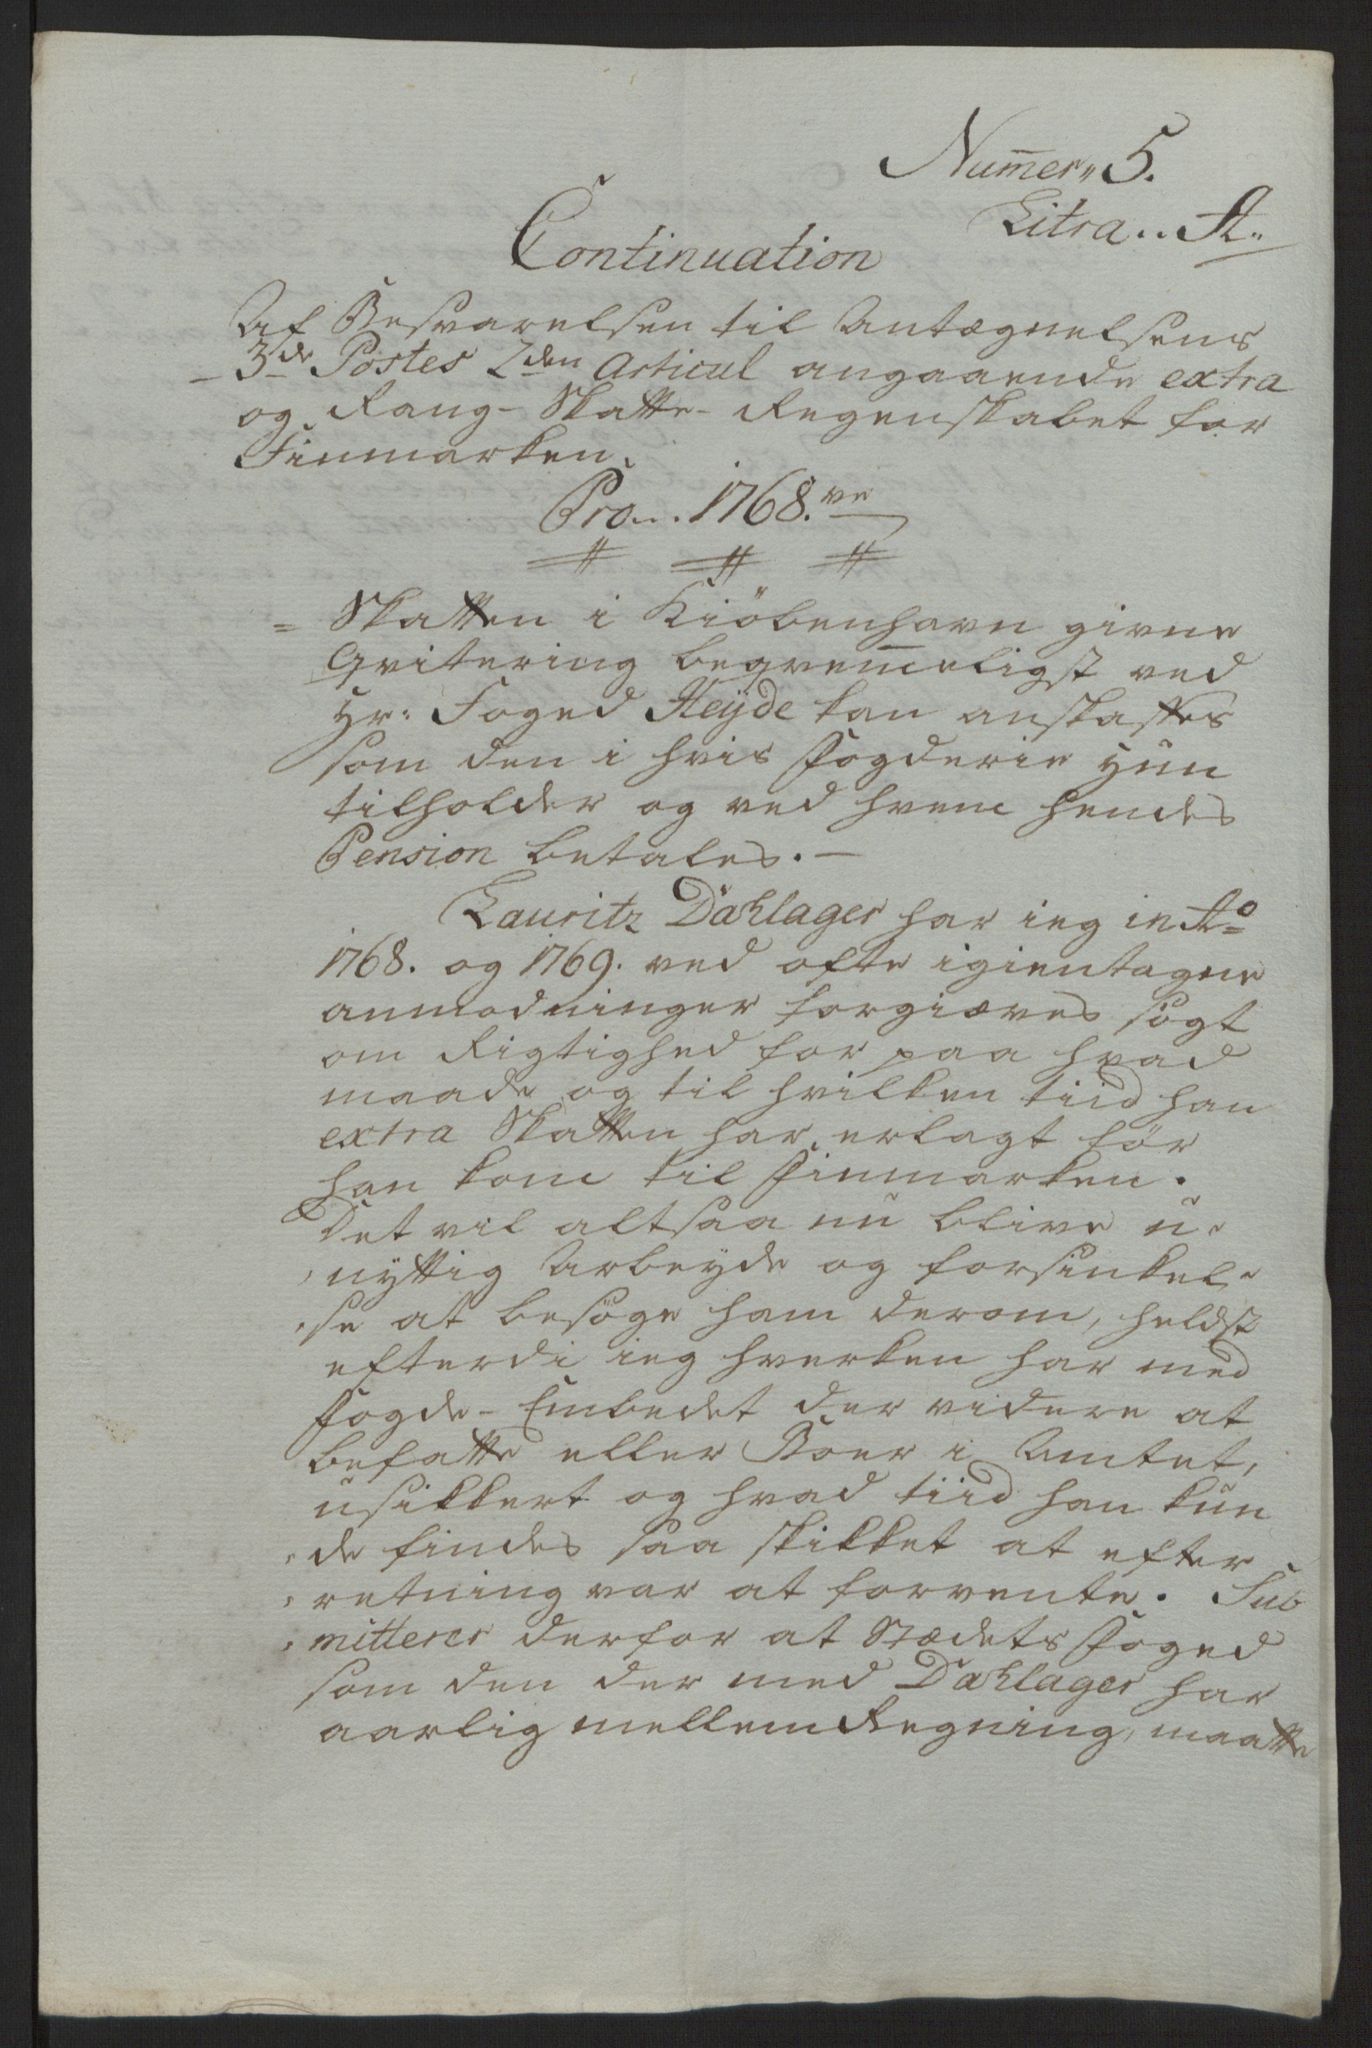 Num̅er„ 5.
Litra.. A„
Continuation
Af Besvarelsen til Antægnelsens
3de Postes 2den Articul angaaende extra
og Rang- Skatte- Regenskabet for
Finmarken.
Pro... 1768.ve
Skatten i Kiöbenhavn givne
Qvitering beqvem̅eligst ved
Hr: Foged Heÿde kan anskaffes
som den i hvis Fogderie hun
tilholder og ved hvem hendes
Pension betales. —
Lauritz Dahlager har ieg in Ao
1768. og 1769. ved ofte igientagne
anmodninger forgiæves sögt
om Rigtighed for paa hvad
maade og til hvilken tiid han
extra Skatten har erlagt för
han kom til Finmarken.
Det vil altsaa nu blive u-
nyttig Arbeyde og forsinkel-
se at besöge ham derom, heldst
efterdi ieg hverken har med
Fogde- Embedet der videre at
befatte eller Boer i Amtet,
usikkert og hvad tiid han kun
de findes saa skikket at efter
retning var at forvente. Sub
mitterer derfor at Stædets Foged
som den der med Dahlager har
aarlig mellem Regning, maatte